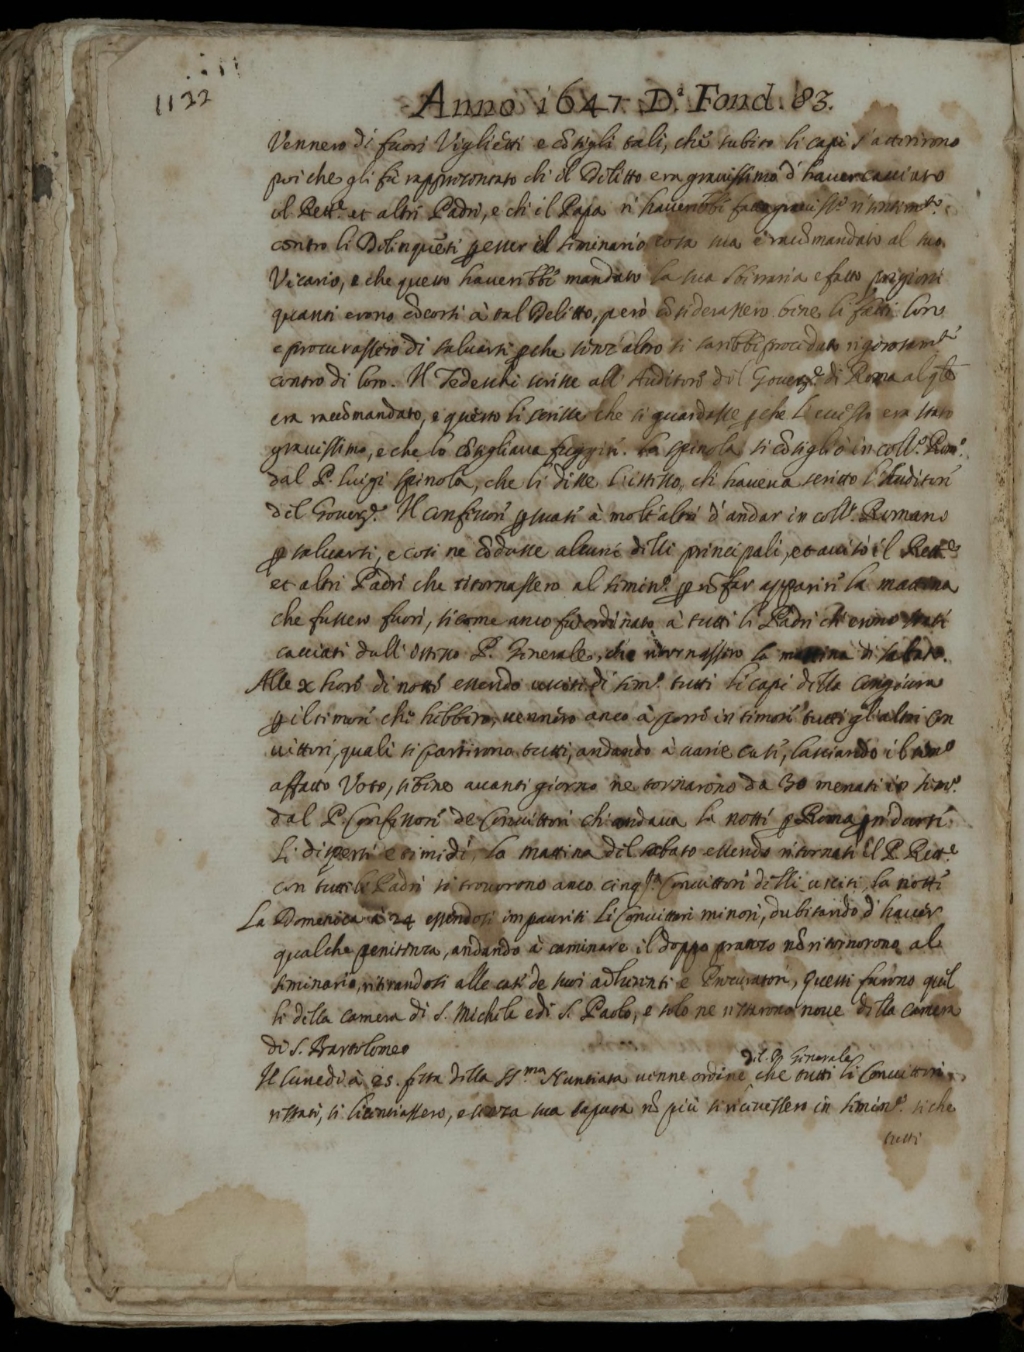 1122
Anno 1647 Dª Fond. 83.
Vennero di fuori Viglietti e cõsigli tali, che subito li capi s'atterirono
poi che gli fù rappresentato ch il Delitto era gravissimo d'haver cacciato
il Rett.e et altri Padri, e ch il Papa n' haverebbe fatto graviss.o risentim.to
contro li Delinquẽti ꝑ esser il seminario cosa sua e raccõmandato al suo
Vicario, e che questo haverebbe mandato la sua sbirraria e fatto prigioni
quanti erono cõcorsi à tal Delitto, però cõsiderassero bene li fatti loro
e procurassero di salvarsi ꝑche senz'altro si sarebbe proceduto rigorosam.te
contro di loro. Il Tedeschi scrisse all' Auditore del Govern.re di Roma al qle
era raccõmandato, e questo li scrisse che si guardasse ꝑche l'eccesso era stato
gravissimo, e che lo cõsigliava fuggire. Lo spinola si cõsigliò in coll.o Rom.o
dal P. Luigi spinola, che li disse l'istesso, ch haveva scritto l'Auditore
del Govern.re Il Confessore ꝑsuase à molt'altri d'andar in coll.o Romano
ꝑ salvarsi, e così ne cõdusse alcuni delli principali, et avisò il Rett.e
et altri Padri che ritornassero al semin.o ꝑ nõ far apparire la mattina
che fussero fuori, sicome anco fù ordinato à tutti li Padri ch erono stati
cacciati dall'istesso P. Generale, che ritornassero la mattina di sabato.
Alle x hore di notte essendo usciti di sem.o tutti li capi della congiura
ꝑ il timore che hebbero, vennero anco à porre in timore tutti gl'altri Con
vittori, quali si partirono tutti, andando à varie case, lasciando il sem.o
affatto Voto, sibene avanti giorno ne tornarono da 30 menati in sem.o
dal P. Confessore de Convittori ch andava la notte ꝑ Roma ꝑ ridurre
li dispersi e timidi, la mattina del sabato essendo ritornati il P. Rett.e
con tutti li Padri si trovorono anco Convittori delli usciti la notte
La Domenica à 24 essendosi impauriti li Convittori minori, dubitando d'haver
qualche penitenza, andando à caminare il doppo pranzo nõ ritornorono al
seminario, ritirandosi alle case de suoi adherenti e Procuratori, Questi furono quel
li della camera di S. Michele e di S. Paolo, e solo ne restarono nove della camera
di S. Bartolomeo
del P. Generale
Il lunedì à 25. festa della SS.ma Nuntiata venne ordine che tutti li Convittori
restati, si licentiassero, e senza sua saputa nõ più si ricevessero in semin.o siche
tutti